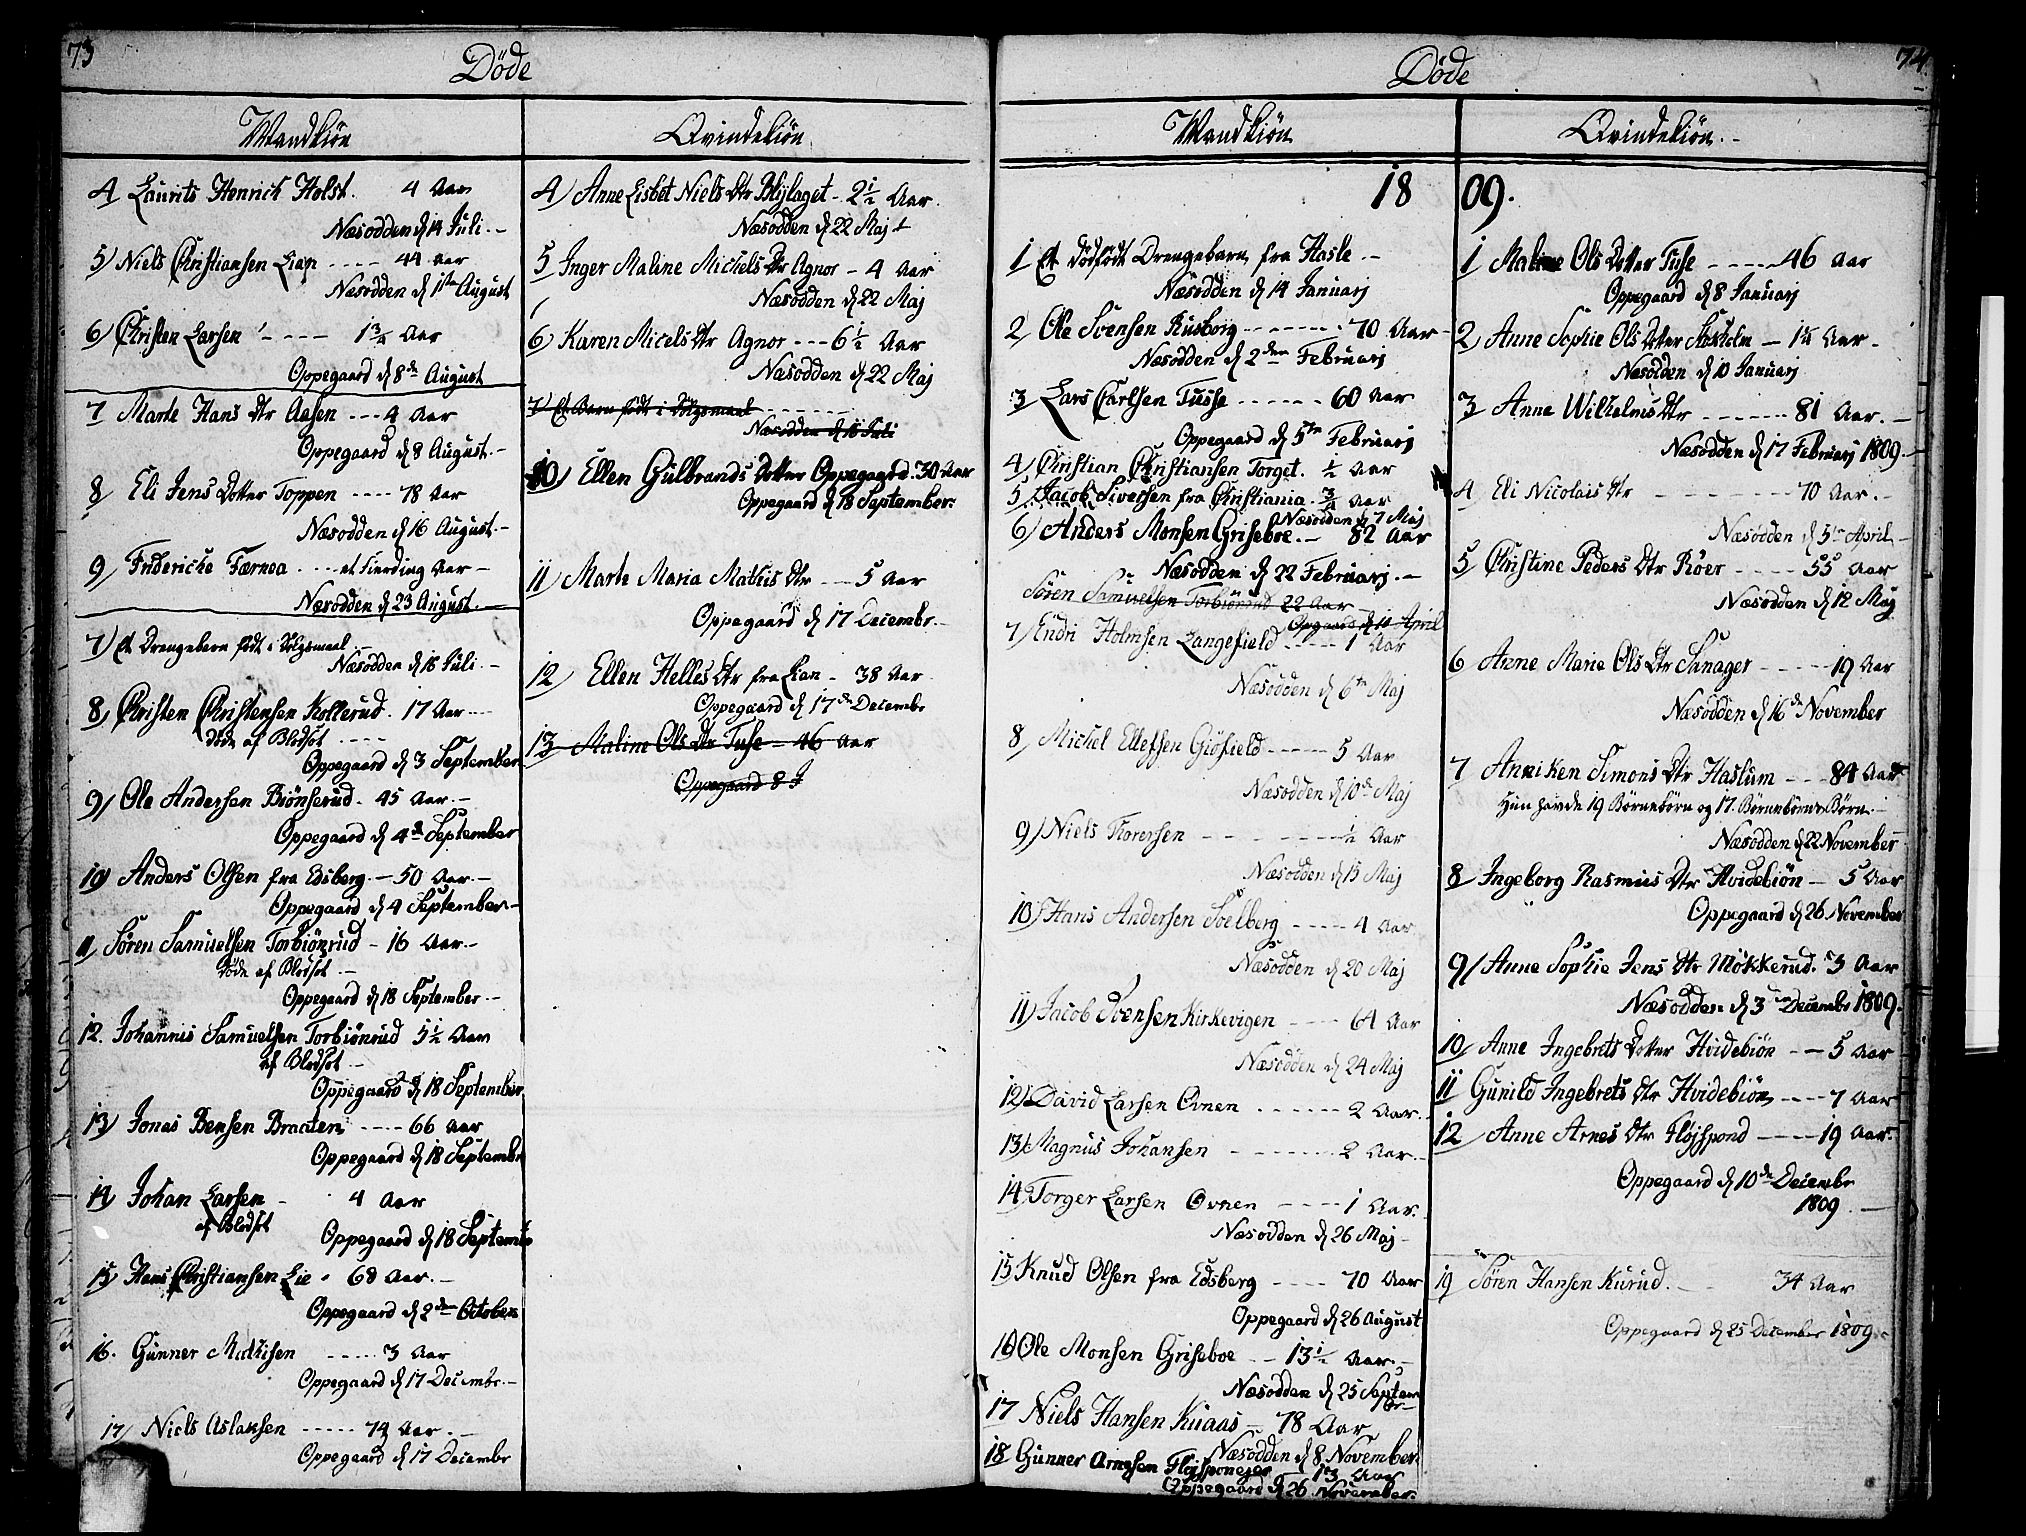 73
Døde
Mandkiøn
4 Laurits Henrich Holst. 4 Aar
Næsodden d 14 Juli. -
5) Niels Christiansen ---- 44 aar
Næsodden d 1ste August
6) Christen Larsen ---- 1¾ Aar
Oppegaard d 8de August
7 Marte Hans Dtr Aasen --- 4 Aar
Oppegaard d 8 August. -
8 Eli Jens Dotter Toppen ---- 78 Aar
Næsodden d 16 August. -
9 Frideriche Færnea .... et Fierding Aar -
Næsodden d 23 August. -
7) Et Drengebarn født i Dølgsmaal
Næsodden d 18 Juli. -
8) Christen Christensen Kollerud. 17 Aar ---
døde af Blodsot ----
Oppegaard d 3 September
9) Ole Andersen Brønserud. 45 Aar. -
Oppegaard d 4de September
10) Anders Olsen fra Edsberg. - 50 Aar. -
Oppegaard d 4 September -
11 Søren Samuelsen Torbiønrud - 16 Aar. -
døde af Blodsot -
Oppegaard d 18 September. -
12. Johannis Samuelsen Torbiønrud 5½ Aar
af Blodsot -
Oppegaard d 18 September
13) Jonas Bensen Braaten ---- 66 Aar
Oppegaard d 18 Septembr
14) Johan Larsen - 4 Aar
af Blodsot
Oppegaard d 18 Septemb
15) Hans Christiansen Lie - 68 Aar. -
Oppegaard d 2den October
16. Gunner Mathisen ---- 3 Aar
Oppegaard d 17 Decembr. -
17) Niels Aslaksen ----- 74 Aar. -
Oppegaard d 17 Decembr
Qvindekiøn
4) Anne Lisbet Niels Dtr Blylaget - 2½ Aar.
Næsodden d 22 Maj
5 Inger Maline Michels Dtr Agnor - 4 Aar
Næsodden d 22 Maj
6) Karen Micels Dtr Agnor --- 6½ Aar
Næsodden d 22 Maj
7) Et Barn født i Dølgsmaal ------
Næsodden d 18 Juli
10) Ellen Gulbrands Dotter Oppegaard 30 Aar
Oppegaard d 18 September.
11 Marte Maria Mathis Dtr --- 5 Aar
Oppegaard d 17 Decembr. -
12 Ellen Helles Dtr fra - 38 Aar
Oppegaard d 17de Decembr
13 Maline Ols Dtr Tuse - 46 Aar
Oppegaard 8 J
74
Døde
Mandkiøn
1809.
1 Et dødfødt Drengebarn fra Hasle. -
Næsodden d 14 Januarj
2 Ole Svensen Rusborg ------- 70 Aar
Næsodden d 2den Februarj
3 Lars Carlsen Tusse ------ 60 Aar
Oppegaard d 5te Februarj
4) Christian Christiansen Torget. ½ Aar
5) Jacob Sivertsen fra Christiania. ¾ Aar
Næsodden d 7 Maj
6) Anders Monsen Griseboe. - 82 Aar
Næsodden d 22 Februarj. -
Søren Samuelsen Torbiønrud 22 Aar
Opegaard d 11 April
7) Endri Holmsen Langefield ----- 1 Aar
Næsodden d 6te Maj
8 Michel Ellefsen Giøfield ----- 5 Aar
Næsodden d 10de Maj
9) Niels Thoresen ------- ½ Aar
Næsodden d 15 Maj
10) Hans Andersen Soelberg ---- 4 Aar
Næsodden d 20 Maj
11) Jacob Svensen Kirkevigen ---- 64 Aar
Næsodden d 24 Maj
12) David Larsen Ovnen ------ 2 Aar.
13) Magnus Johansen ------- 2 Aar. -
14 Torger Larsen Ovnen ---- 1 Aar.
Næsodden d 26 Maj -
15 Knud Olsen fra Edsberg ---- 70 Aar
Oppegaard d 26 August
16) Ole Monsen Griseboe --- 13½ Aar. -
Næsodden d 25 Septem
br -
17 Niels Hansen Knaas - 78 Aar
Næsodden d 8 November.
18 Gunner Arnesen 13 Aar
Oppegaard d 26 November.
Qvindekiøn. -
1 Maline Ols Dotter Tuse ----- 46 Aar
Oppegaard d 8 Januarj
2 Anne Sophie Ols Dotter Stokholm - 1¼ Aar. -
Næsodden d 10 Januarj
3 Anne Wilhelms Dtr ------- 81 Aar. -
Næsodden d 17 Februarj 1809. -
4 Eli Nicolais Dtr ------- 70 Aar. -
Næsodden d 5te April -
5 Christine Peders Dtr Røer ----- 55 Aar
Næsodden d 12 Maj
6 Anne Marie Ols Dtr Sanager ----- 19 Aar
Næsodden d 16de November
7 Anniken Simons Dtr Haslum --- 84 Aar
Hun havde 19 Børnebørn og 17. Børnebørns Børn. -
Næsodden d 22 November
8 Ingeborg Rasmus Dtr Hvidebiøn - 5 Aar
Oppegaard d 26 November
9) Anne Sophie Jens Dtr Møkkerud. 3 Aar
Næsodden d 3 Decembr 1809.
10 Anne Ingebrets Dotter Hvidebiøn --- 5 Aar
11 Gunild Ingebrets Dtr Hvidebiøn ---- 7 Aar
12 Anne Arnes Dtr Fløjspond ----- 19 Aar.
Oppegaard d 10de Decembr
1809. -
19 Søren Hansen Kurud. - 34 Aar
Oppegaard d 25 December 1809.